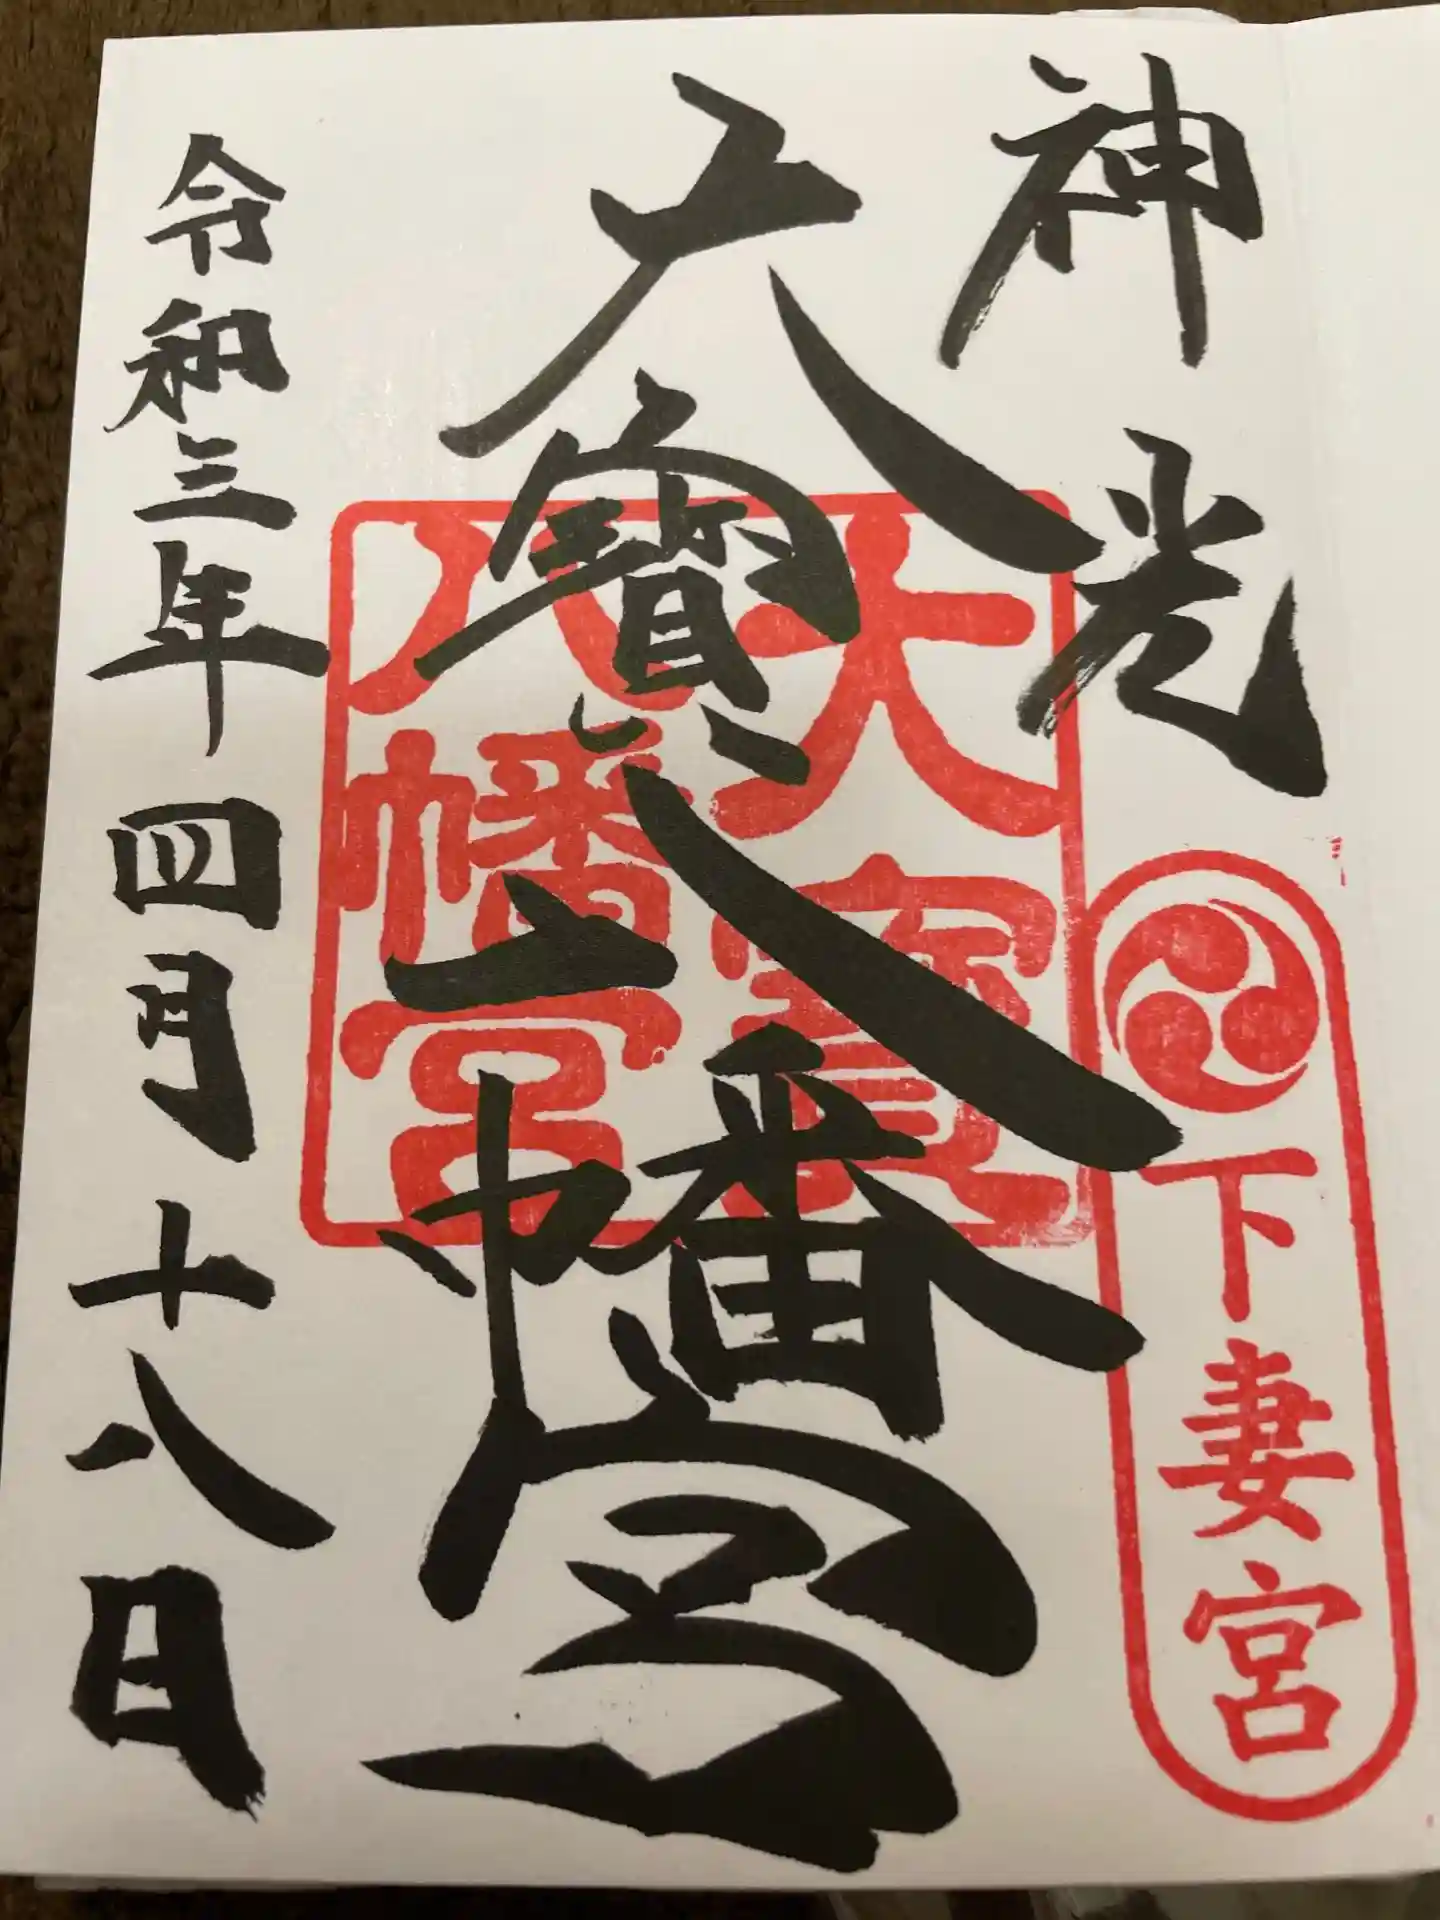 神光
下妻宮
大寳八幡宮
大寳
八幡宮
令和三年四月十八日